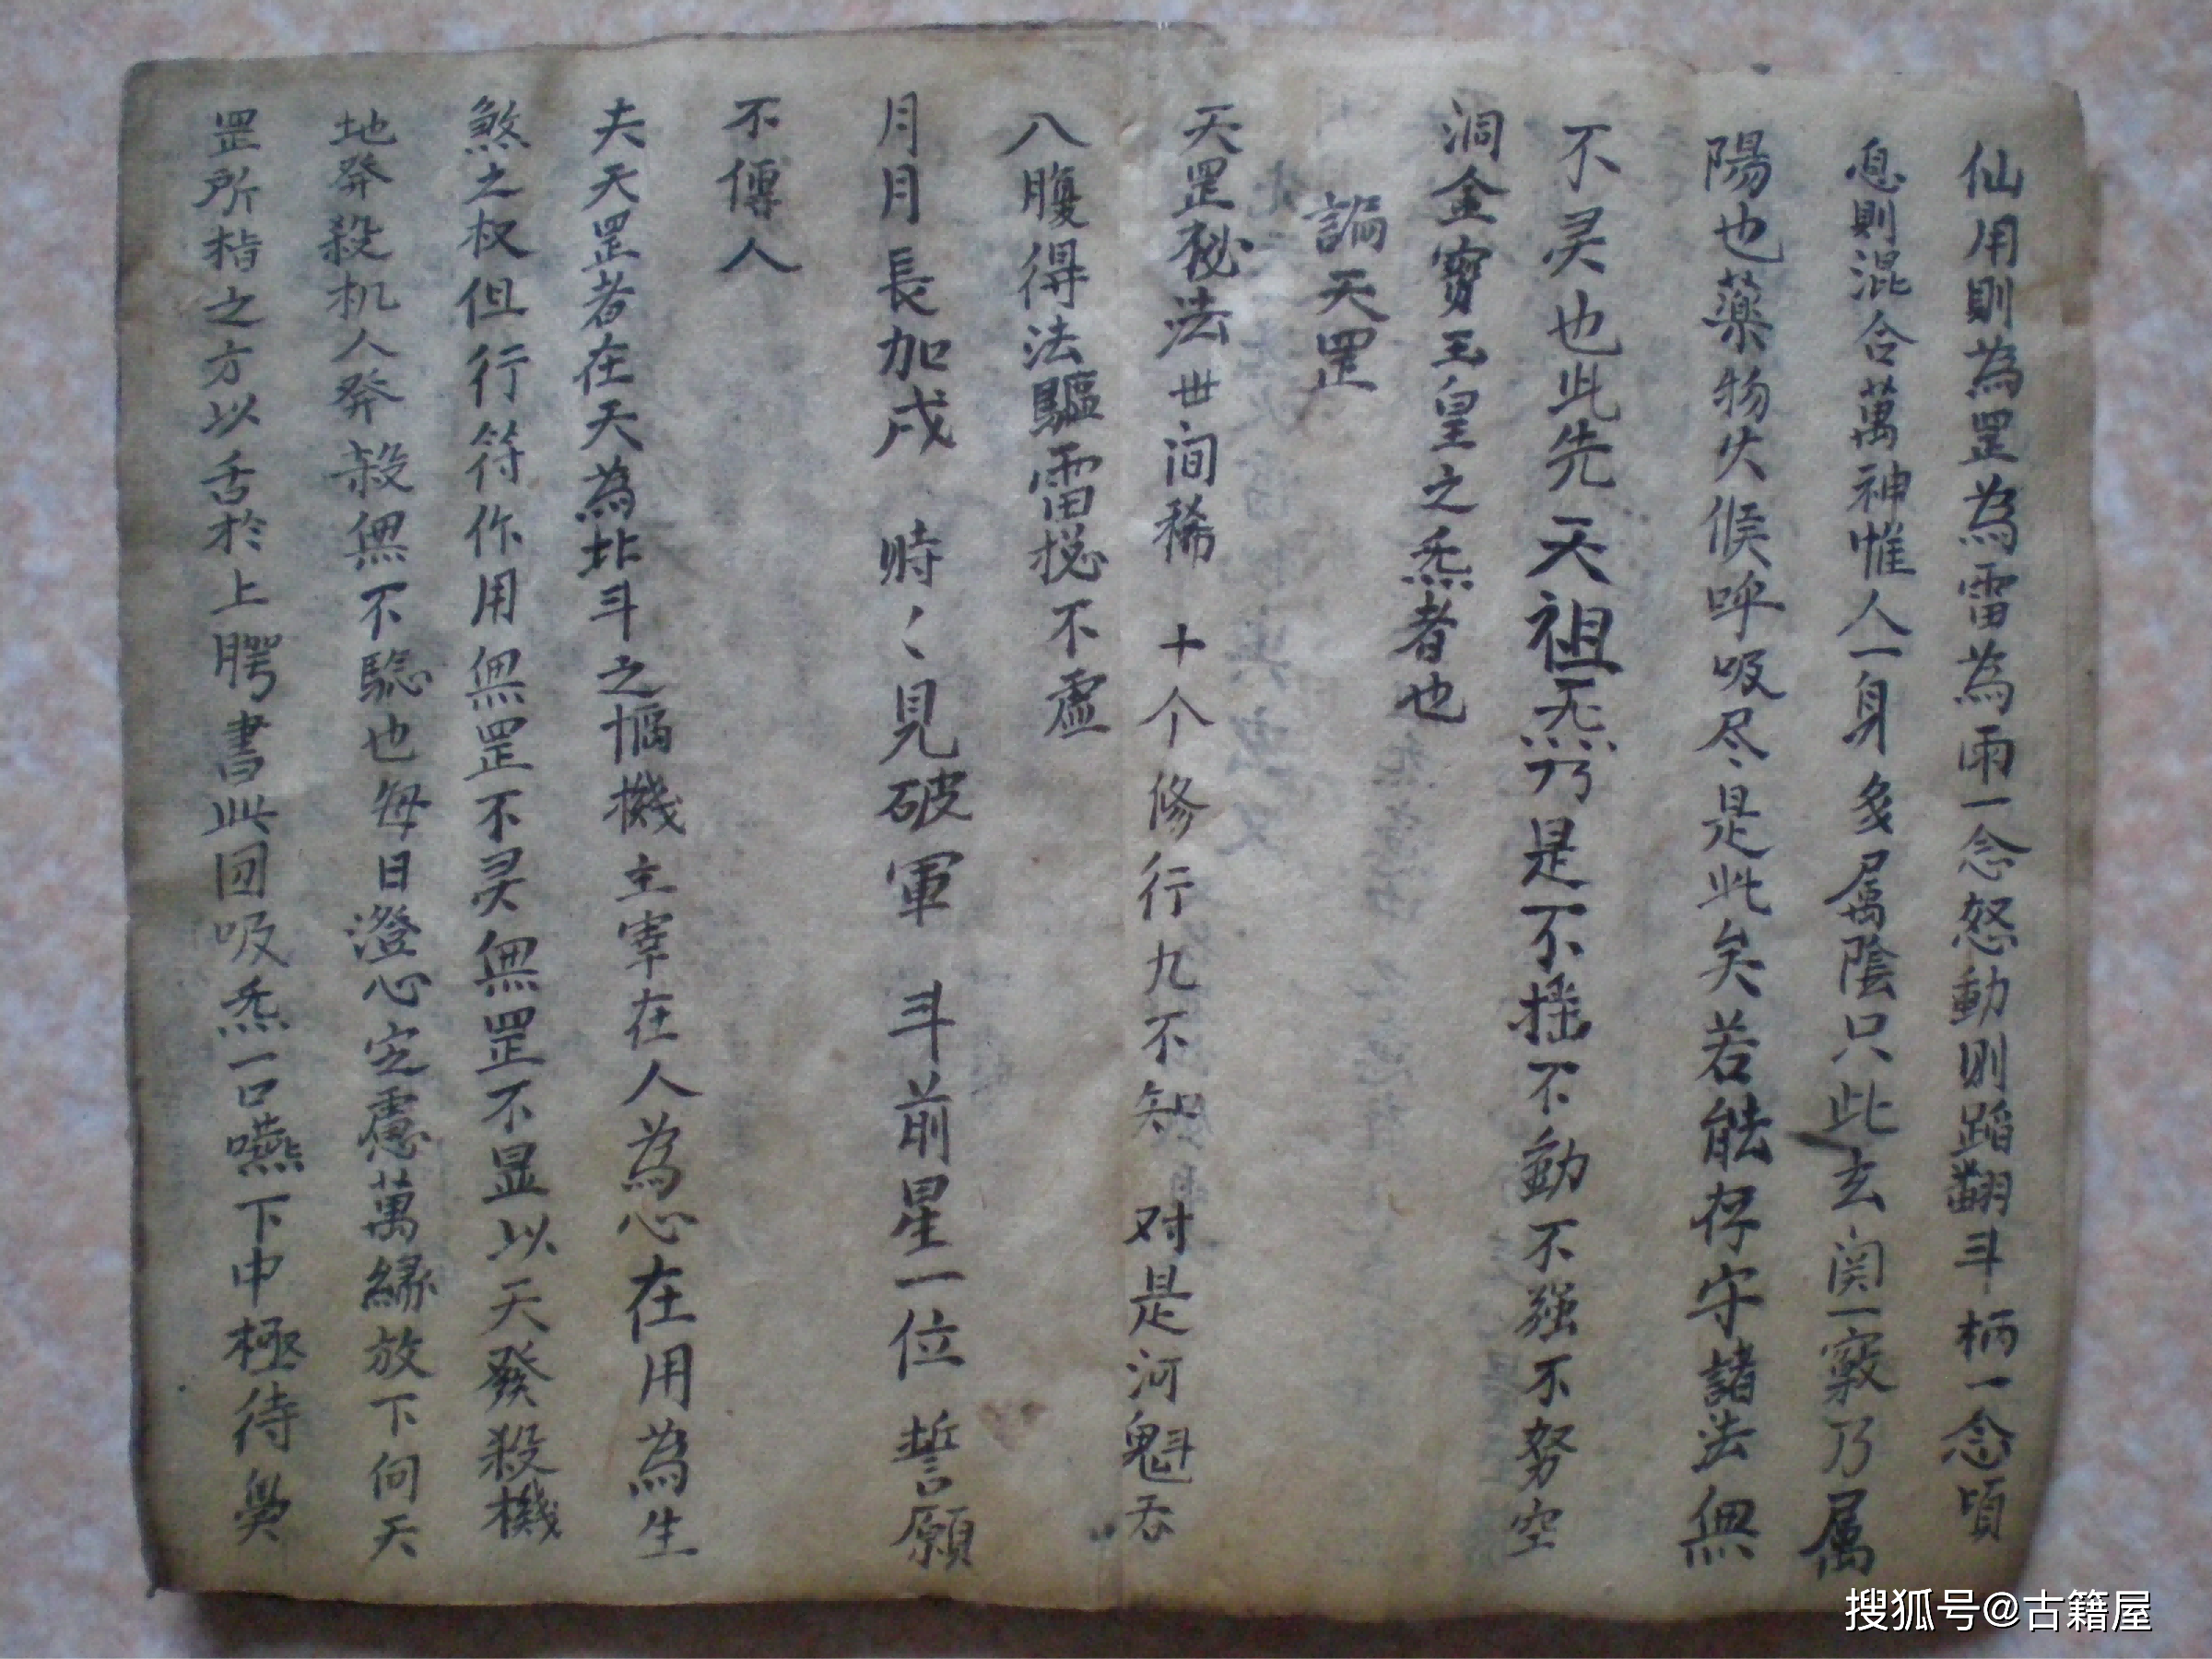 仙用則為罡為雷為雨一念怒動則蹈翻斗柄一念頃
息則混合萬神惟人一身多属陰只此玄関一竅乃属
陽也藥物火候呼吸尽是此矣若能存守諸法無
不灵也此先天祖炁乃是不揺不動不强不努空
洞金寳玉皇之炁者也
論天罡
天罡秘法世间稀 十个修行九不知 对是河魁吞
八腹得法驅雷揔不虚
月月長加戌 時〻見破軍 斗前星一位 誓願
不傳人
夫天罡者在天為北斗之樞機主宰在人為心在用為生
煞之权但行符作用無罡不灵無罡不显以天發殺機
地發殺机人發殺無不騐也每日澄心定慮萬緣放下向天
罡所指之方以舌於上腭書此回吸炁一口嚥下中極待鼻
搜狐号@古籍屋